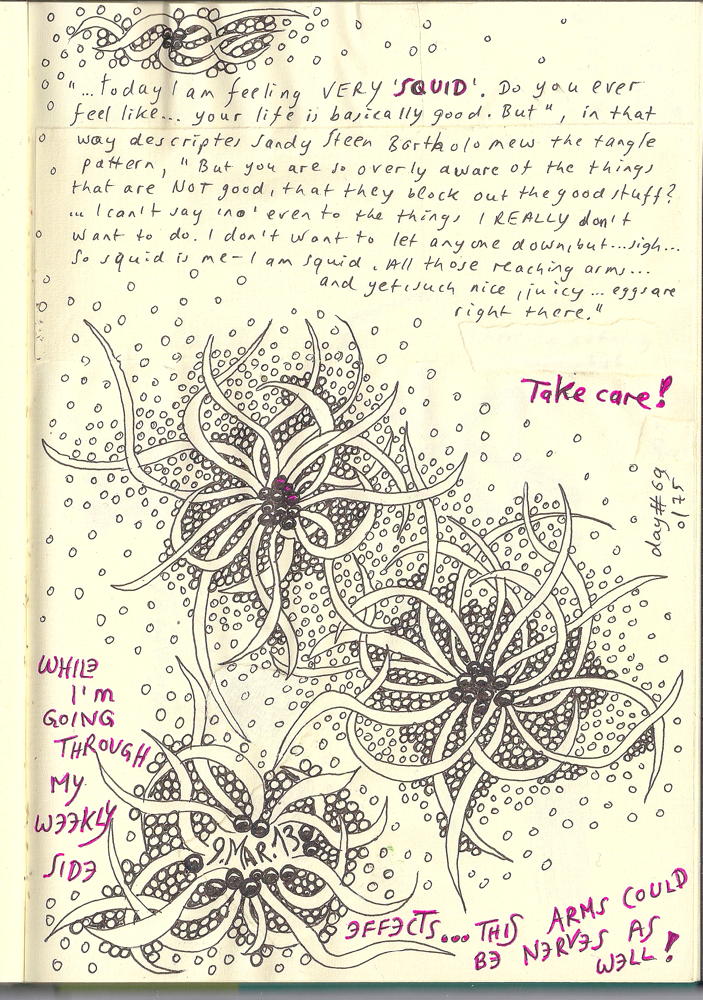 "...Today I am feeling VERY 'SQUID'. Do you ever
feel like... your life is basically good. But", in that
way descriptes Sandy Steen Bartholomew the tangle
pattern, "But you are so overly aware of the things
that are NOT good, that they block out the good stuff?
... I can't say 'no' even to the things I REALLY don't
want to do. I don't want to let anyone down, but...sigh...
So squid is me - I am squid. All those reaching arms...
and yet, such nice, juicy... eggs are
right there."
Take care!
day#69
0/75
WHILE
I'm
GOING
THROUGH
MY
WEEKLY
SIDE
9.MAR.13
EFFECTS... THIS ARMS COULD
BE NERVES AS
WELL!